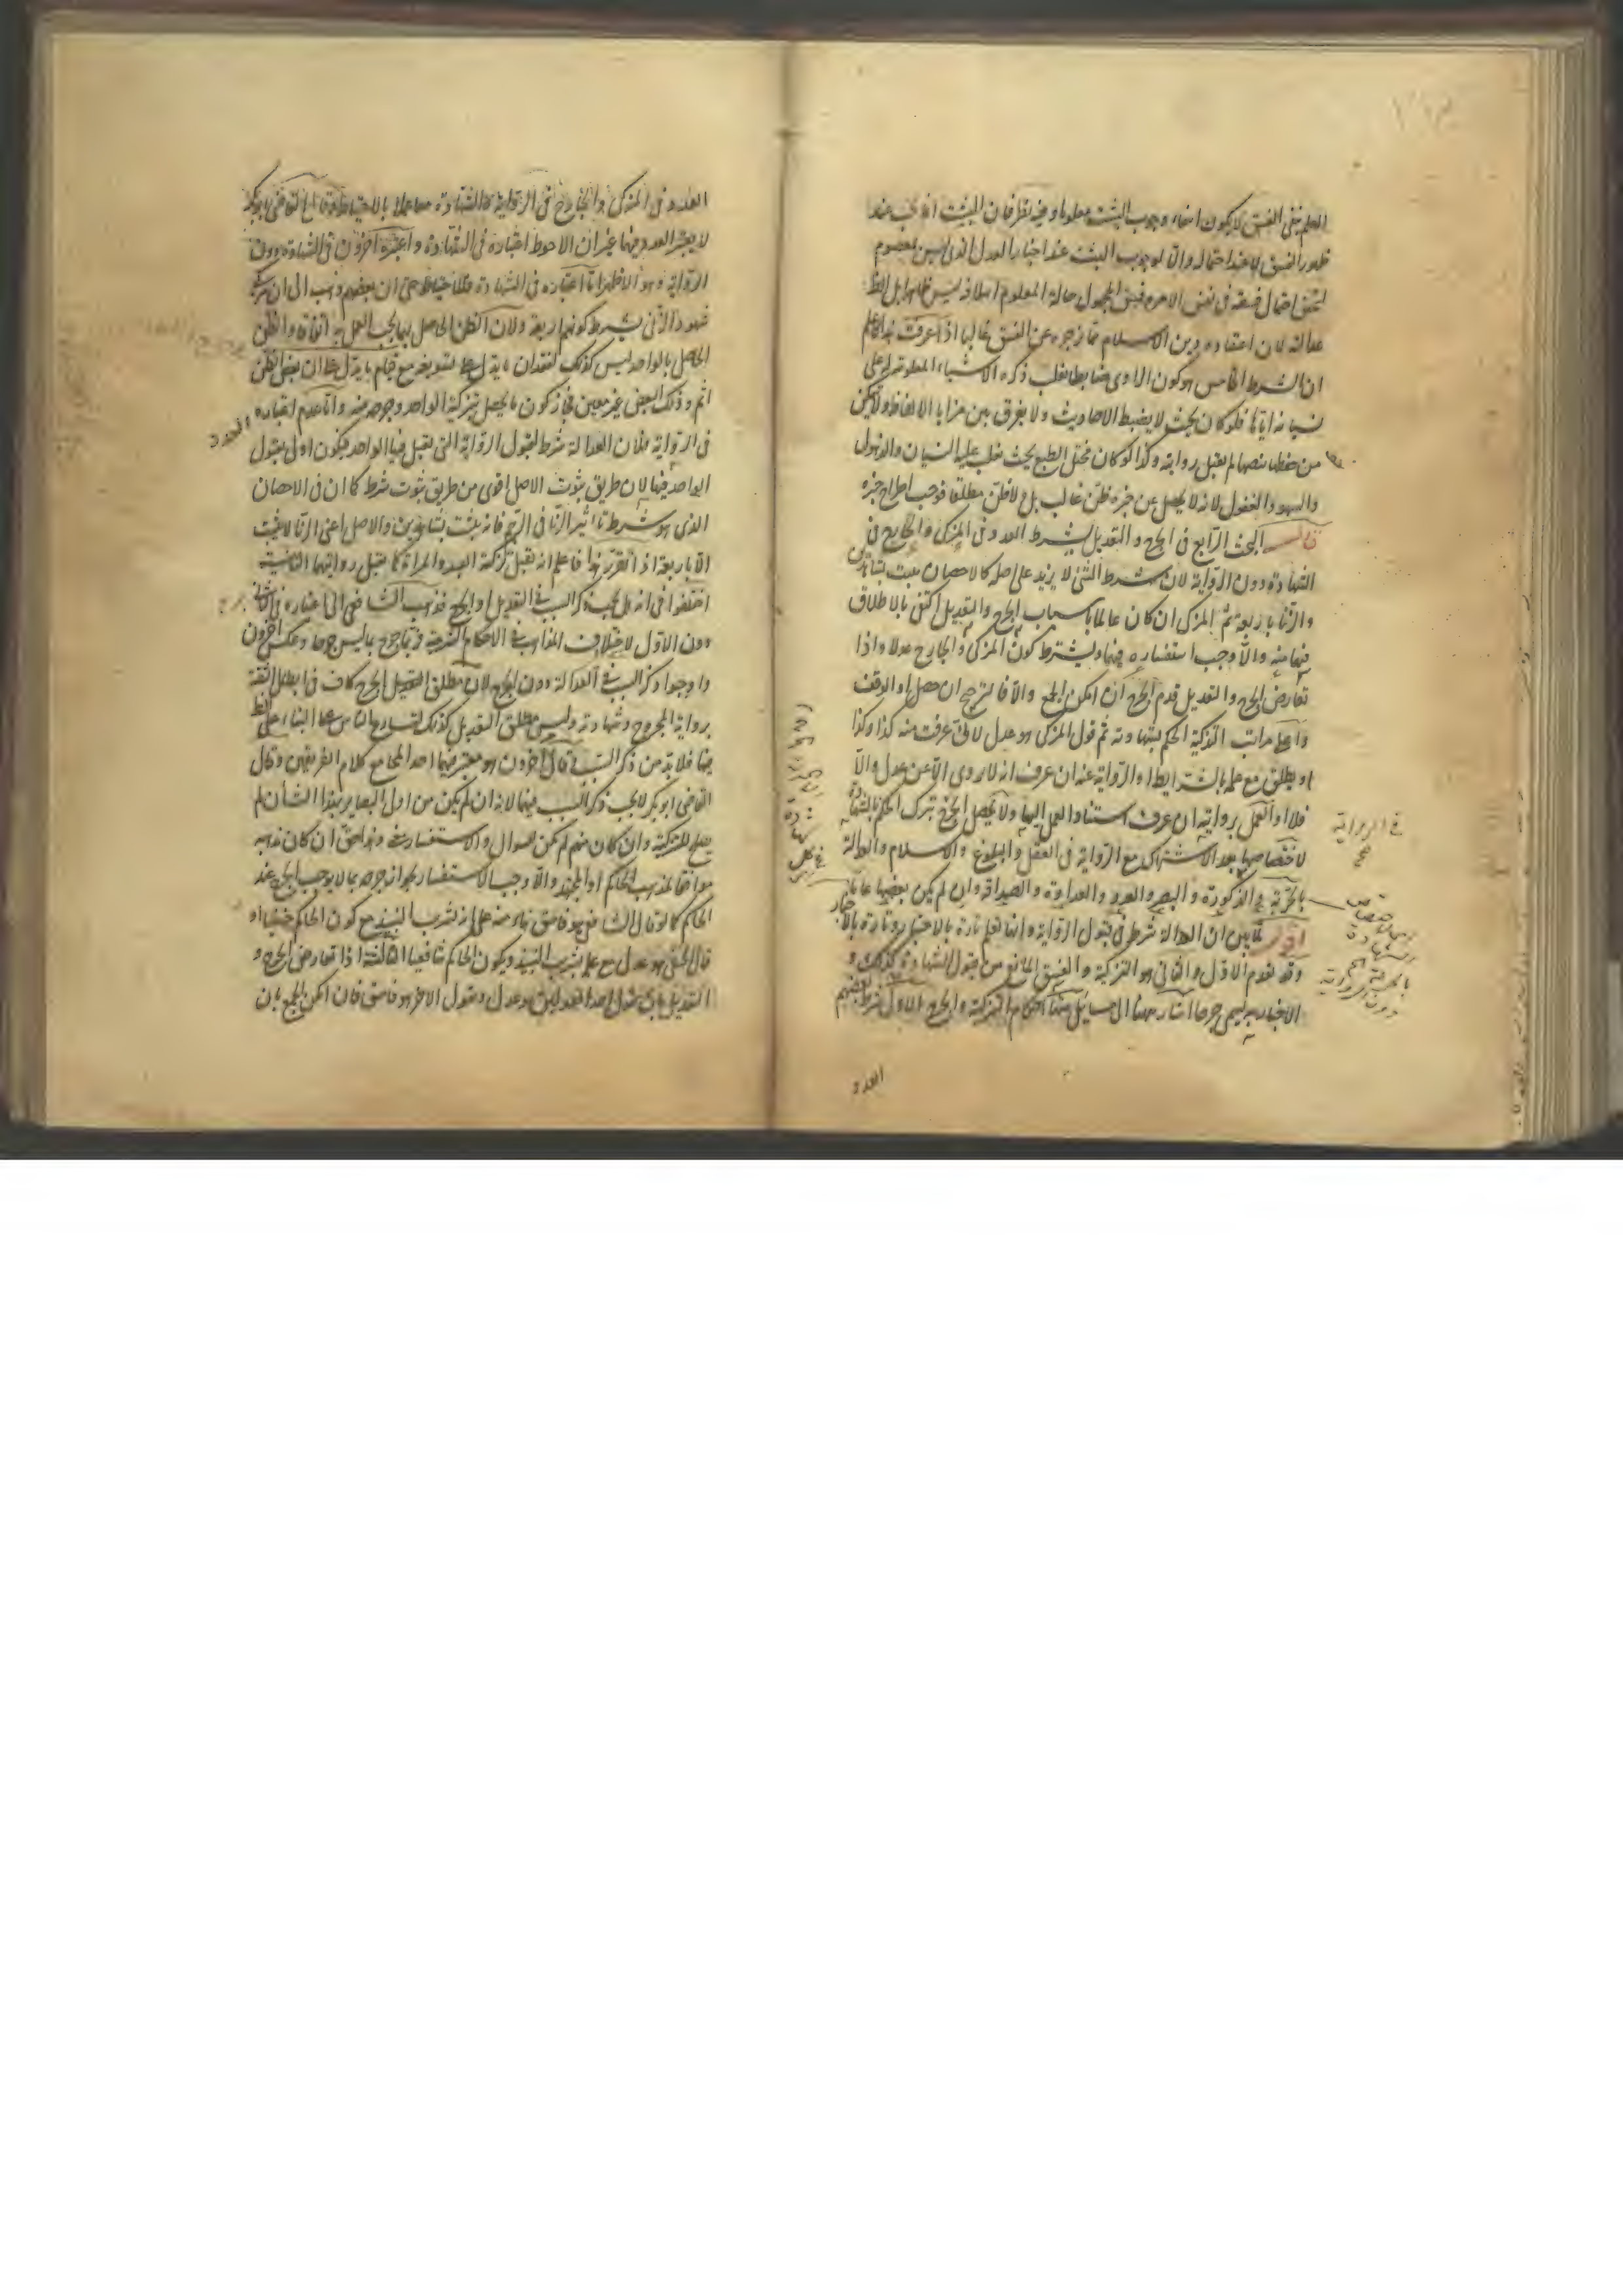 العلم بنفى الفسق لا يكون انتفاء وجوب التثبت معلوما وفيه نظر فان التثبت انما يجب عند
ظهور الفسق لا عند احتماله والا لوجب التثبت عند اخبار العدل الذى ليس بمعصوم
لتحقق احتمال فسقه فى نفس الامر وفسق المجهول حاله المعلوم اسلامه ليس ظاهرا بل الظ
عدالته لان اعتقاده دين الاسلام مما يزجره عن الفسق غالبا اذا عرفت هذا فاعلم
ان الشرط الخامس هو كون الراوى ضابطا يغلب ذكره الاشياء المعلومة له على
نسيانه اياها فلو كان بحيث لا يضبط الاحاديث ولا يفرق بين مزايا الالفاظ ولا يتمكن
من حفظها بنصها لم يقبل روايته وكذا لو كان مختل الطبع بحيث يغلب عليه النسيان والذهول
والسهو والغفول لانه لا يحصل عن خبره ظن غالب بل ولا ظن مطلقا فوجب اطراح خبره
قال البحث الرابع فى الجرح و التعديل يشترط العدد فى المزكى والجارح فى
الشهادة دون الرواية لان شرط الشئ لا يزيد على اصله كالاحصان يثبت بشاهدين
والزنا باربعة ثم المزكى ان كان عالما باسباب الجرح والتعديل اكتفى بالاطلاق
فيهما منه والا وجب استفساره فيهما ويشترط كون المزكى والجارح عدلا واذا
تعارض الجرح والتعديل قدم الجرح ان امكن الجمع والا فالترجيح ان حصل او الوقف
واعلا مراتب التزكية الحكم بشهادته ثم قول المزكى هو عدل لانى عرفت منه كذا وكذا
او يطلق مع علمه بالشرايط او الرواية عنه ان عرف انه لا يروى الا عن عدل والا
فلا او العمل بروايته ان عرف استناد العمل اليها ولا يحصل الجرح بترك الحكم بالشهادة
لاختصاصها بعد الاشتراك مع الرواية فى العقل والبلوغ والاسلام والعدالة
بالحرية والذكورة والبصر والعدد والعداوة والصداقة وان لم يكن بعضها عاما
اقول لما بين ان العدالة شرط فى قبول الرواية وانها تعلم تارة بالاختبار وتارة بالاخبار
وقد تقدم الاول والثانى هو التزكية والفسق المانع من قبول الشهادة كذلك و
الاخبار به يسمى جرحا اشار هنا الى مسايل هنا احكام التزكية والجرح الاول شرط بعضهم
العدد
فى الرواية
صح
اى لاختصاص
الشهادة
بالحرية
دون الرواية
العدد فى المزكى والجارح فى الرواية والشهادة معا عملا بالاحتياط وقال القاضى ابو بكر
لا يعتبر العدد فيهما غير ان الاحوط اعتباره فى الشهادة واعتبره اخرون فى الشهادة دون
الرواية وهو الاظهر اما اعتباره فى الشهادة فللاحتياط حتى ان بعضهم ذهب الى ان مزكى
شهود الزنى يشترط كونهم اربعة ولان الظن الحاصل بهما يجب العمل به اتفاقا والظن
الحاصل بالواحد ليس كذلك لفقدان ما يدل على تسويغه مع قيام ما يدل على ان بعض الظن
اثم وذلك البعض غير معين فجاز كون ما يحصل بتزكية الواحد وجرحه منه واما عدم اعتباره
العدد
فى الرواية فلان العدالة شرط لقبول الرواية التى يقبل فيها الواحد فيكون اولى بقبول
الواحد فيها لان طريق ثبوت الاصل اقوى من طريق ثبوت شرطه كما ان فى الاحصان
الذى هو شرط تاثير الزنا فى الرجم فانه يثبت بشاهدين والاصل اعنى الزنا لا يثبت
الا باربعة اذا تقرر هذا فاعلم انه يقبل تزكية العبد والمراة كما يقبل روايتهما الثانية
اختلفوا فى انه هل يجب ذكر السبب فى التعديل او الجرح فذهب الشافعى الى اعتباره فى الثانى
دون الاول لاختلاف المذاهب فى الاحكام الشرعية فربما جرح بما ليس جرحا وعكس اخرون
واوجبوا ذكر السبب فى العدالة دون الجرح لان مطلق الجرح كاف فى ابطال الثقة
برواية المجروح وشهادته وليس مطلق التعديل كذلك لتسارع الناس على البناء على الظ
فيها فلا بد من ذكر السبب وقال اخرون هو معتبر فيهما اخذا بمجامع كلام الفريقين وقال
القاضى ابو بكر لا يجب ذكر السبب فيهما لانه ان لم يكن من اولى البصاير بهذا الشأن لم
يصلح للتزكية وان كان منهم لم يكن للسوال والاستفسار معنى والحق ان كان مذهبه
موافقا لمذهب الحاكم او المجتهد والا وجب الاستفسار لجواز جرحه بما لا يوجب الجرح عند
الحاكم كما لو قال الشافعى هو فاسق بناء منه على انه شرب النبيذ مع كون الحاكم حنفيا او
قال الحنفى هو عدل مع علمه بشرب النبيذ ويكون الحاكم شافعيا الثالثة اذا تعارض الجرح و
التعديل بان يقول احد المعدلين هو عدل ويقول الاخر هو فاسق فان امكن الجمع بان